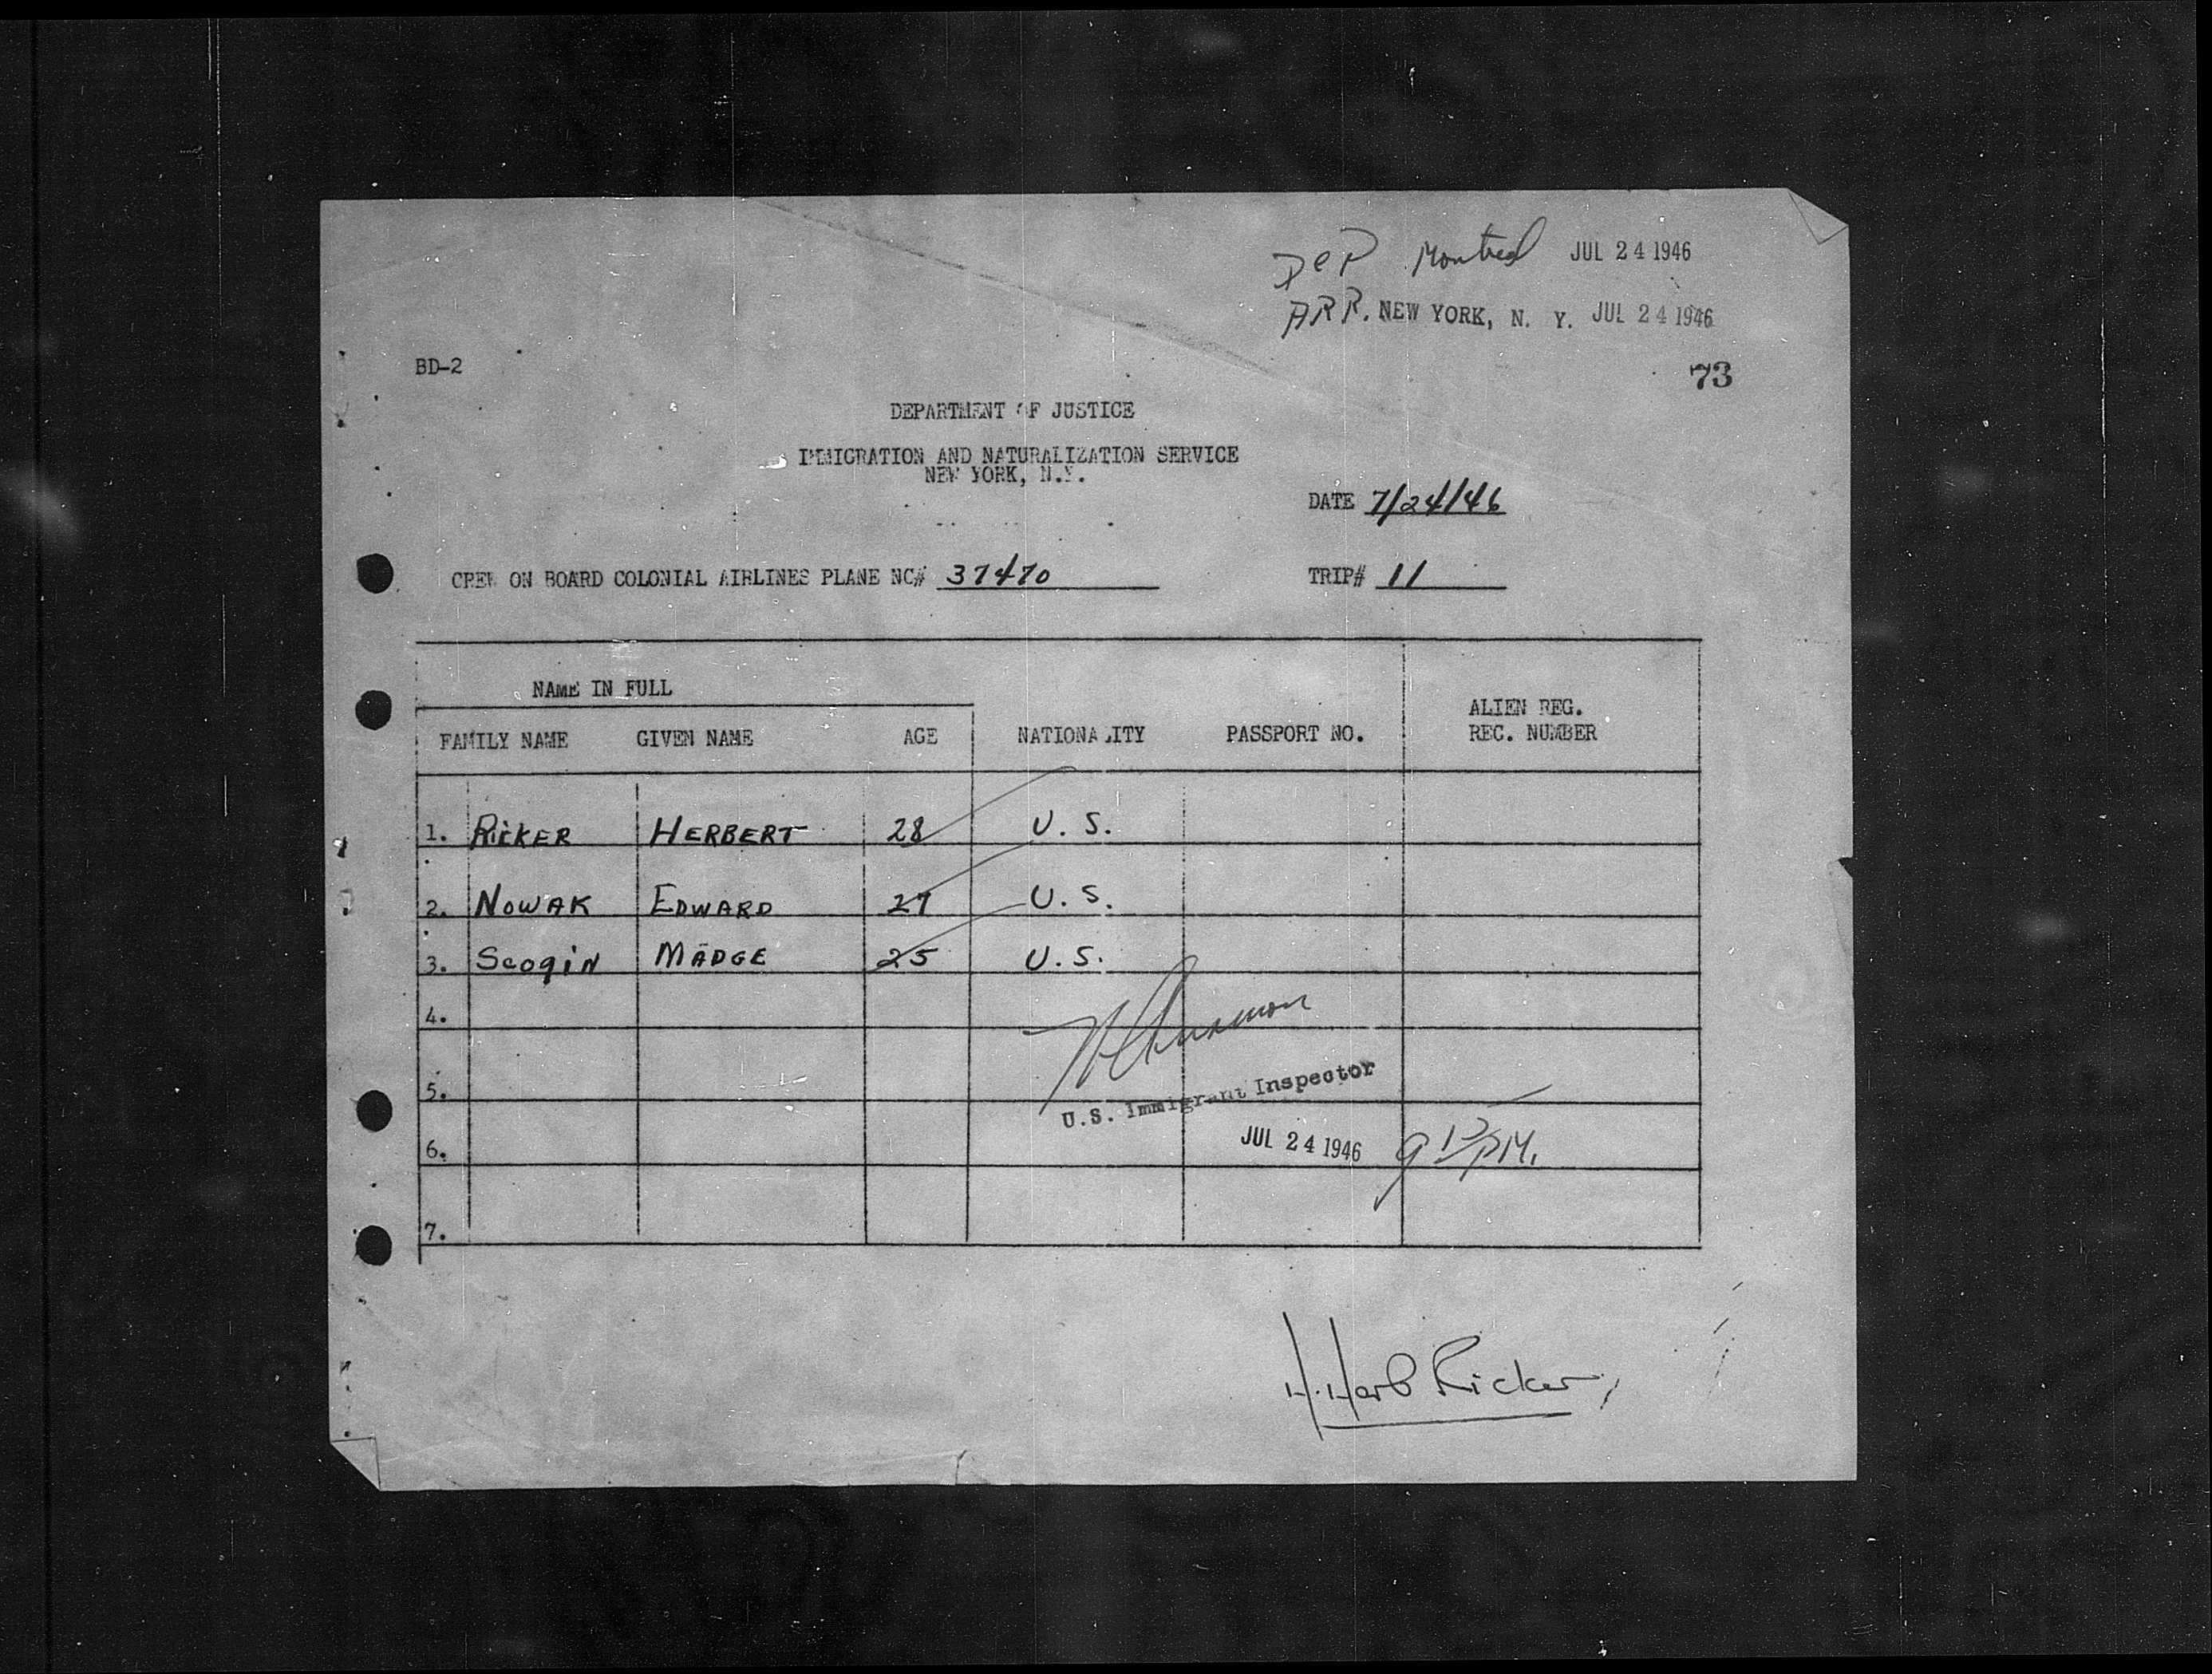 DEP Montreal JUL 24 1946
ARR. NEW YORK, N. Y. JUL 24 1946
BD-2
73
DEPARTMENT OF JUSTICE
IMMIGRATION AND NATURALIZATION SERVICE
NEW YORK, N.Y.
DATE 7/24/46
CREW ON BOARD COLONIAL AIRLINES PLANE NC# 37470 TRIP# 11
NAME IN FULL
FAMILY NAME GIVEN NAME AGE NATIONALITY PASSPORT NO. ALIEN REG. REC. NUMBER
1. RICKER HERBERT 28 U. S.
2. NOWAK EDWARD 27 U. S.
3. Scogin MADGE 25 U. S.
4.
U.S. Immigrant Inspector
5.
6. JUL 24 1946 9 PM.
7.
H. Herb Ricker